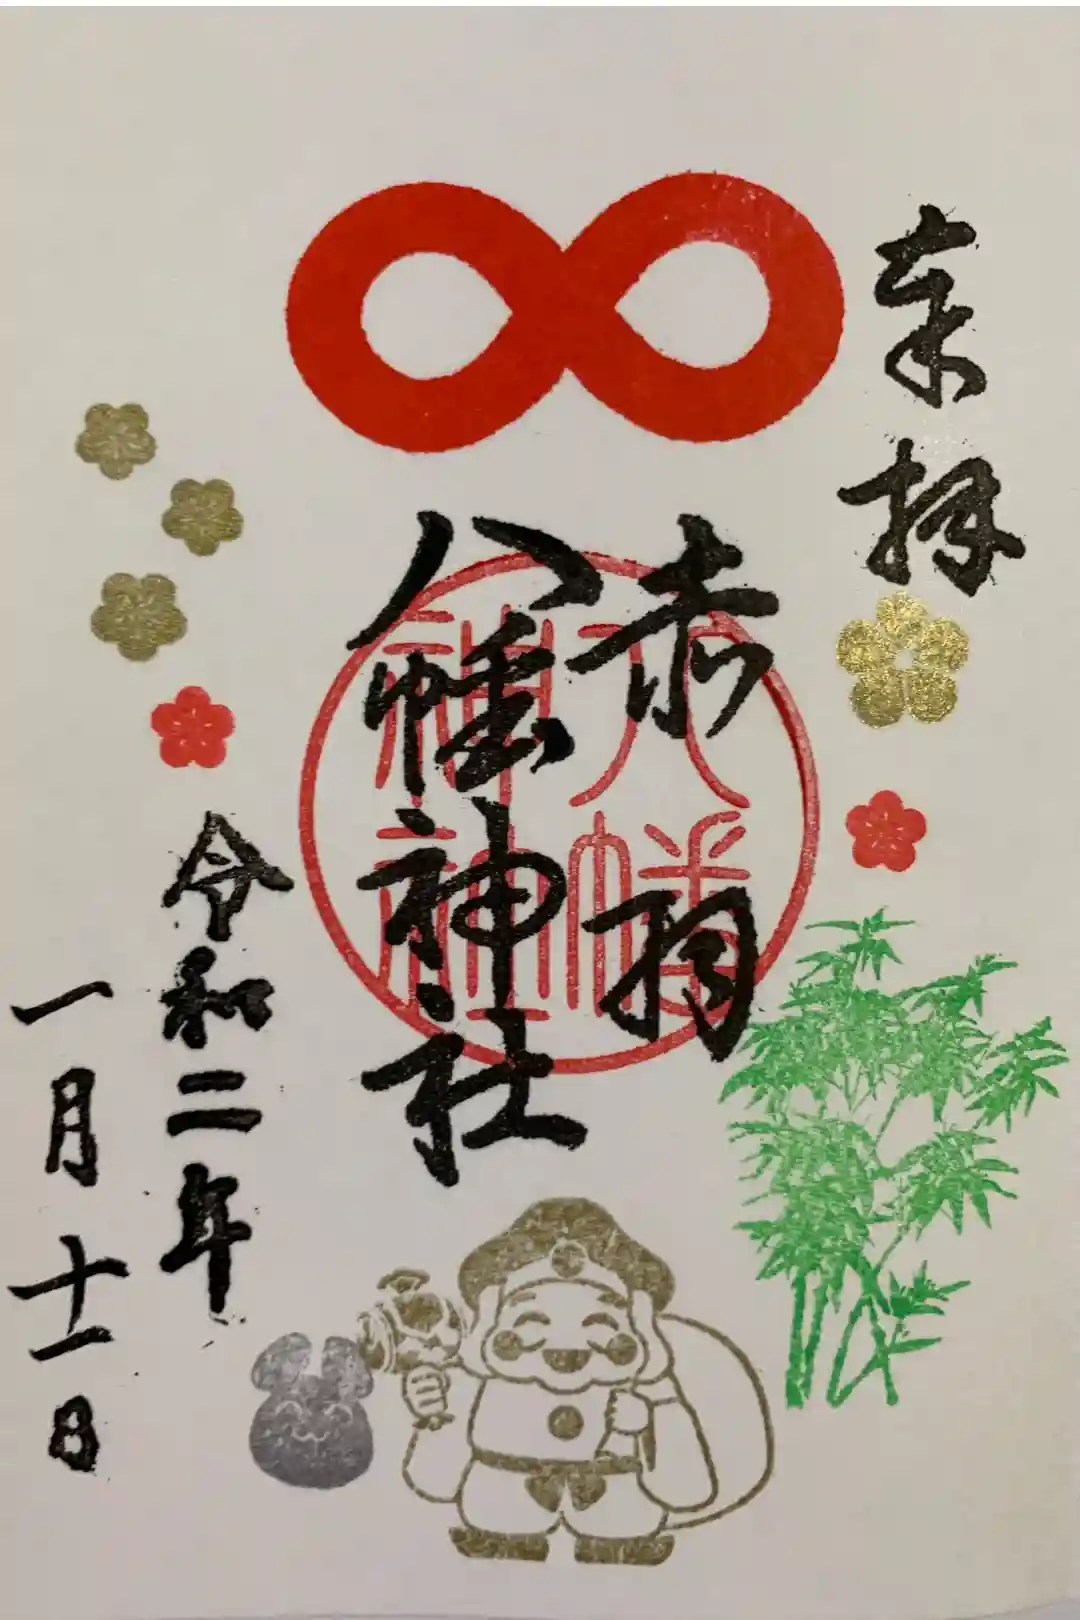 奉拝
赤羽
八幡神社
八幡
神社
令和二年
一月十一日